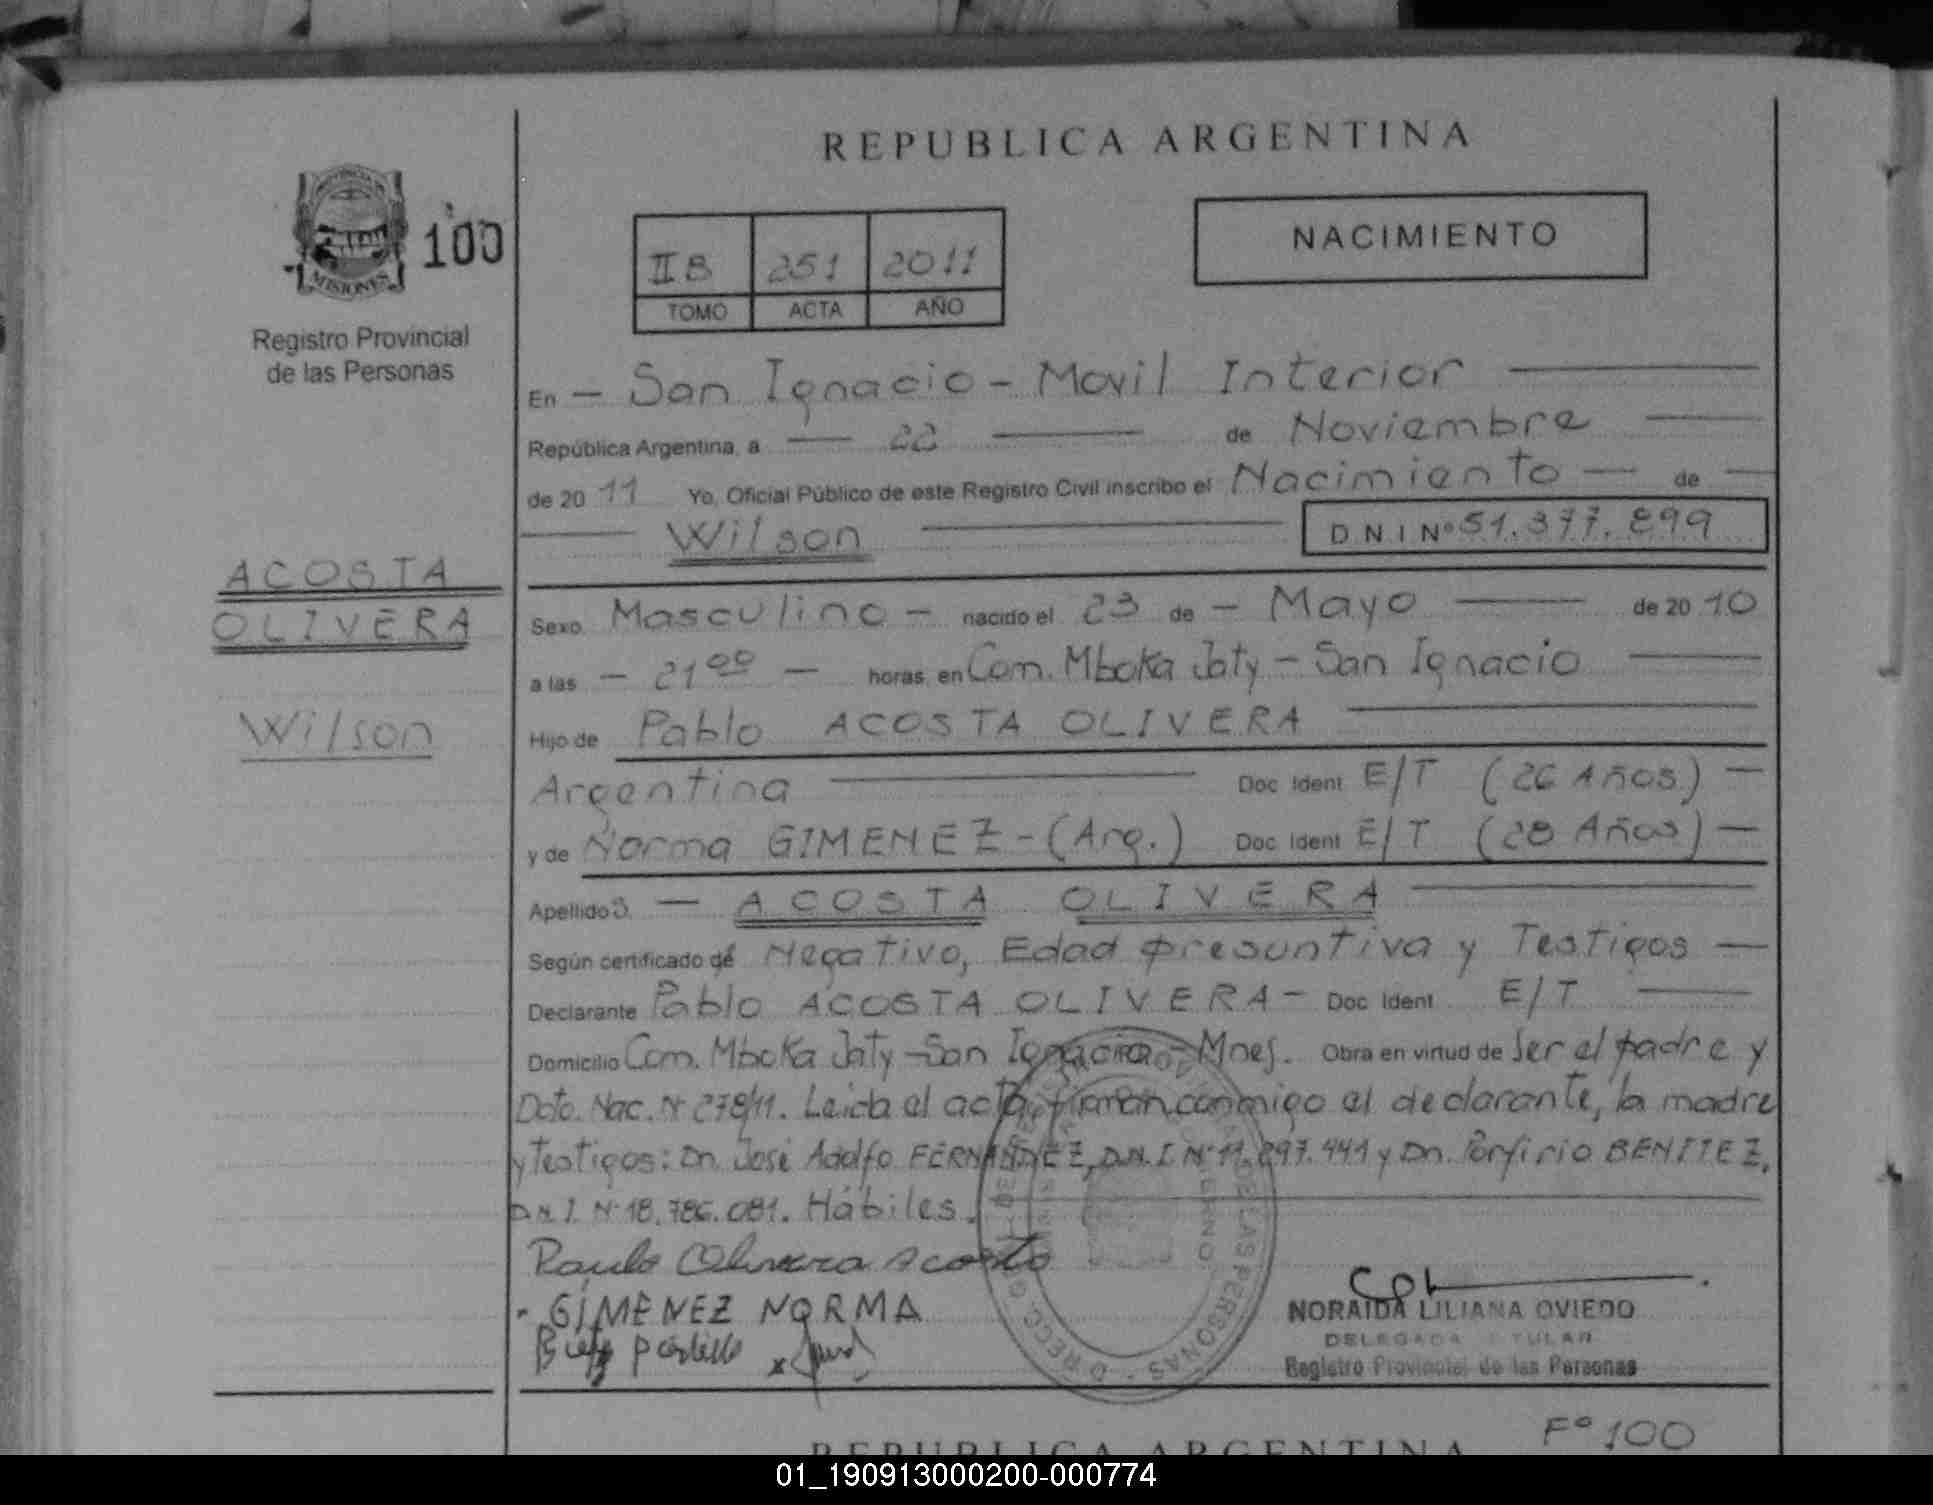 REPUBLICA ARGENTINA
PROVINCIA DE
MISIONES
100
Registro Provincial
de las Personas
II B 251 2011
TOMO ACTA AÑO
NACIMIENTO
En - San Ignacio - Movil Interior
República Argentina, a 22 de Noviembre
de 20 11 Yo, Oficial Público de este Registro Civil inscribo el Nacimiento de
Wilson
D N I Nº 51.377.899
ACOSTA
OLIVERA
Wilson
Sexo Masculino - nacido el 23 de - Mayo de 20 10
a las - 21 00 - horas, en Com. Mboka Jaty - San Ignacio
Hijo de Pablo ACOSTA OLIVERA
Argentina Doc Ident E/T (26 Años) -
y de Norma GIMENEZ - (Arg.) Doc Ident E/T (28 Años) -
Apellidos - ACOSTA OLIVERA
Según certificado de Negativo, Edad presuntiva y Testigos -
Declarante Pablo ACOSTA OLIVERA - Doc Ident E/T
Domicilio Com. Mboka Jaty - San Ignacio - Mnes. Obra en virtud de Ser el padre y
Dcto. Nac. Nº 278/11. Leída el acta, firman conmigo el declarante, la madre
y Testigos: Dn. José Adolfo FERNANDEZ, D.N.I. Nº 11.897.441 y Dn. Porfirio BENITEZ,
D.N.I. Nº 18.786.081. Hábiles.
Olivera Acosta
GIMENEZ NORMA
NORAIDA LILIANA OVIEDO
DELEGADA TITULAR
Registro Provincial de las Personas
DE LAS PERSONAS
Fº 100
REPUBLICA ARGENTINA
01_190913000200-000774